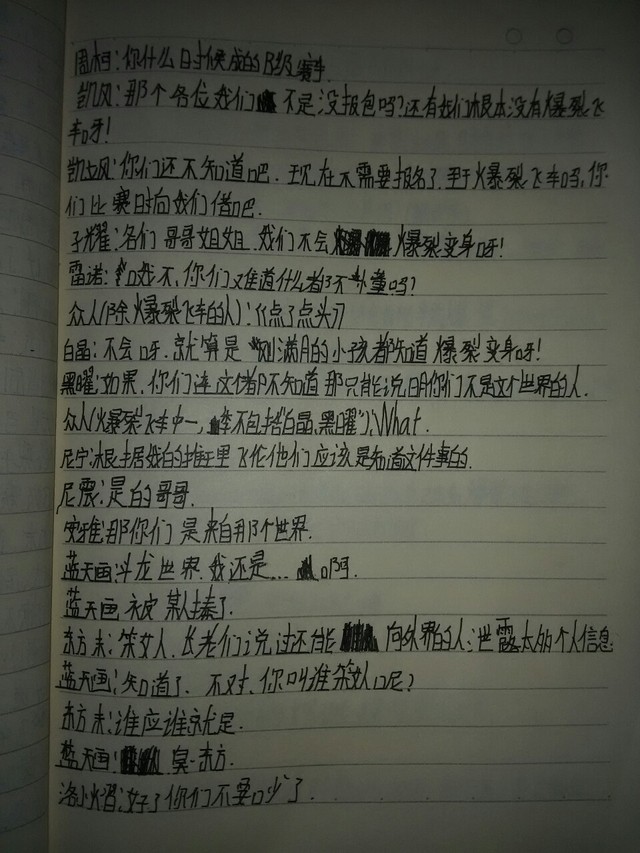 周柯：你什么时候成的B级赛车.
凯风：那个各位我们不是没报包吗？还有我们根本没有爆裂飞
车呀！
凯风：你们还不知道吧.现在不需要报名了.至于爆裂飞车吗,你
们比赛时向我们借吧.
子耀：各们哥哥姐姐.我们不会爆裂变身呀！
雷诺：我不,你们又难道什么都不懂吗？
众人(除爆裂飞车的人)：((点了点头))
白晶：不会呀.就算是刚满月的小孩都知道爆裂变身呀！
黑曜：如果.你们连这都不知道那只能说明你们不是这个世界的人.
众人(爆裂飞车中一,率不包括白晶,黑曜")：What.
尼宁：根据我的推理飞伦他们应该是知道这件事的.
尼震：是的哥哥.
安雅：那你们是来自那个世界.
蓝天画：斗龙世界.我还是...啊.
蓝天画被某人揍了.
东方末：笨女人.长老们说过还能向外界的人：泄露太多的个人信息
蓝天画：知道了.不对,你叫谁笨女人呢？
东方末：谁应谁就是.
蓝天画：臭东方.
洛小熠：好了你们不要吵了.